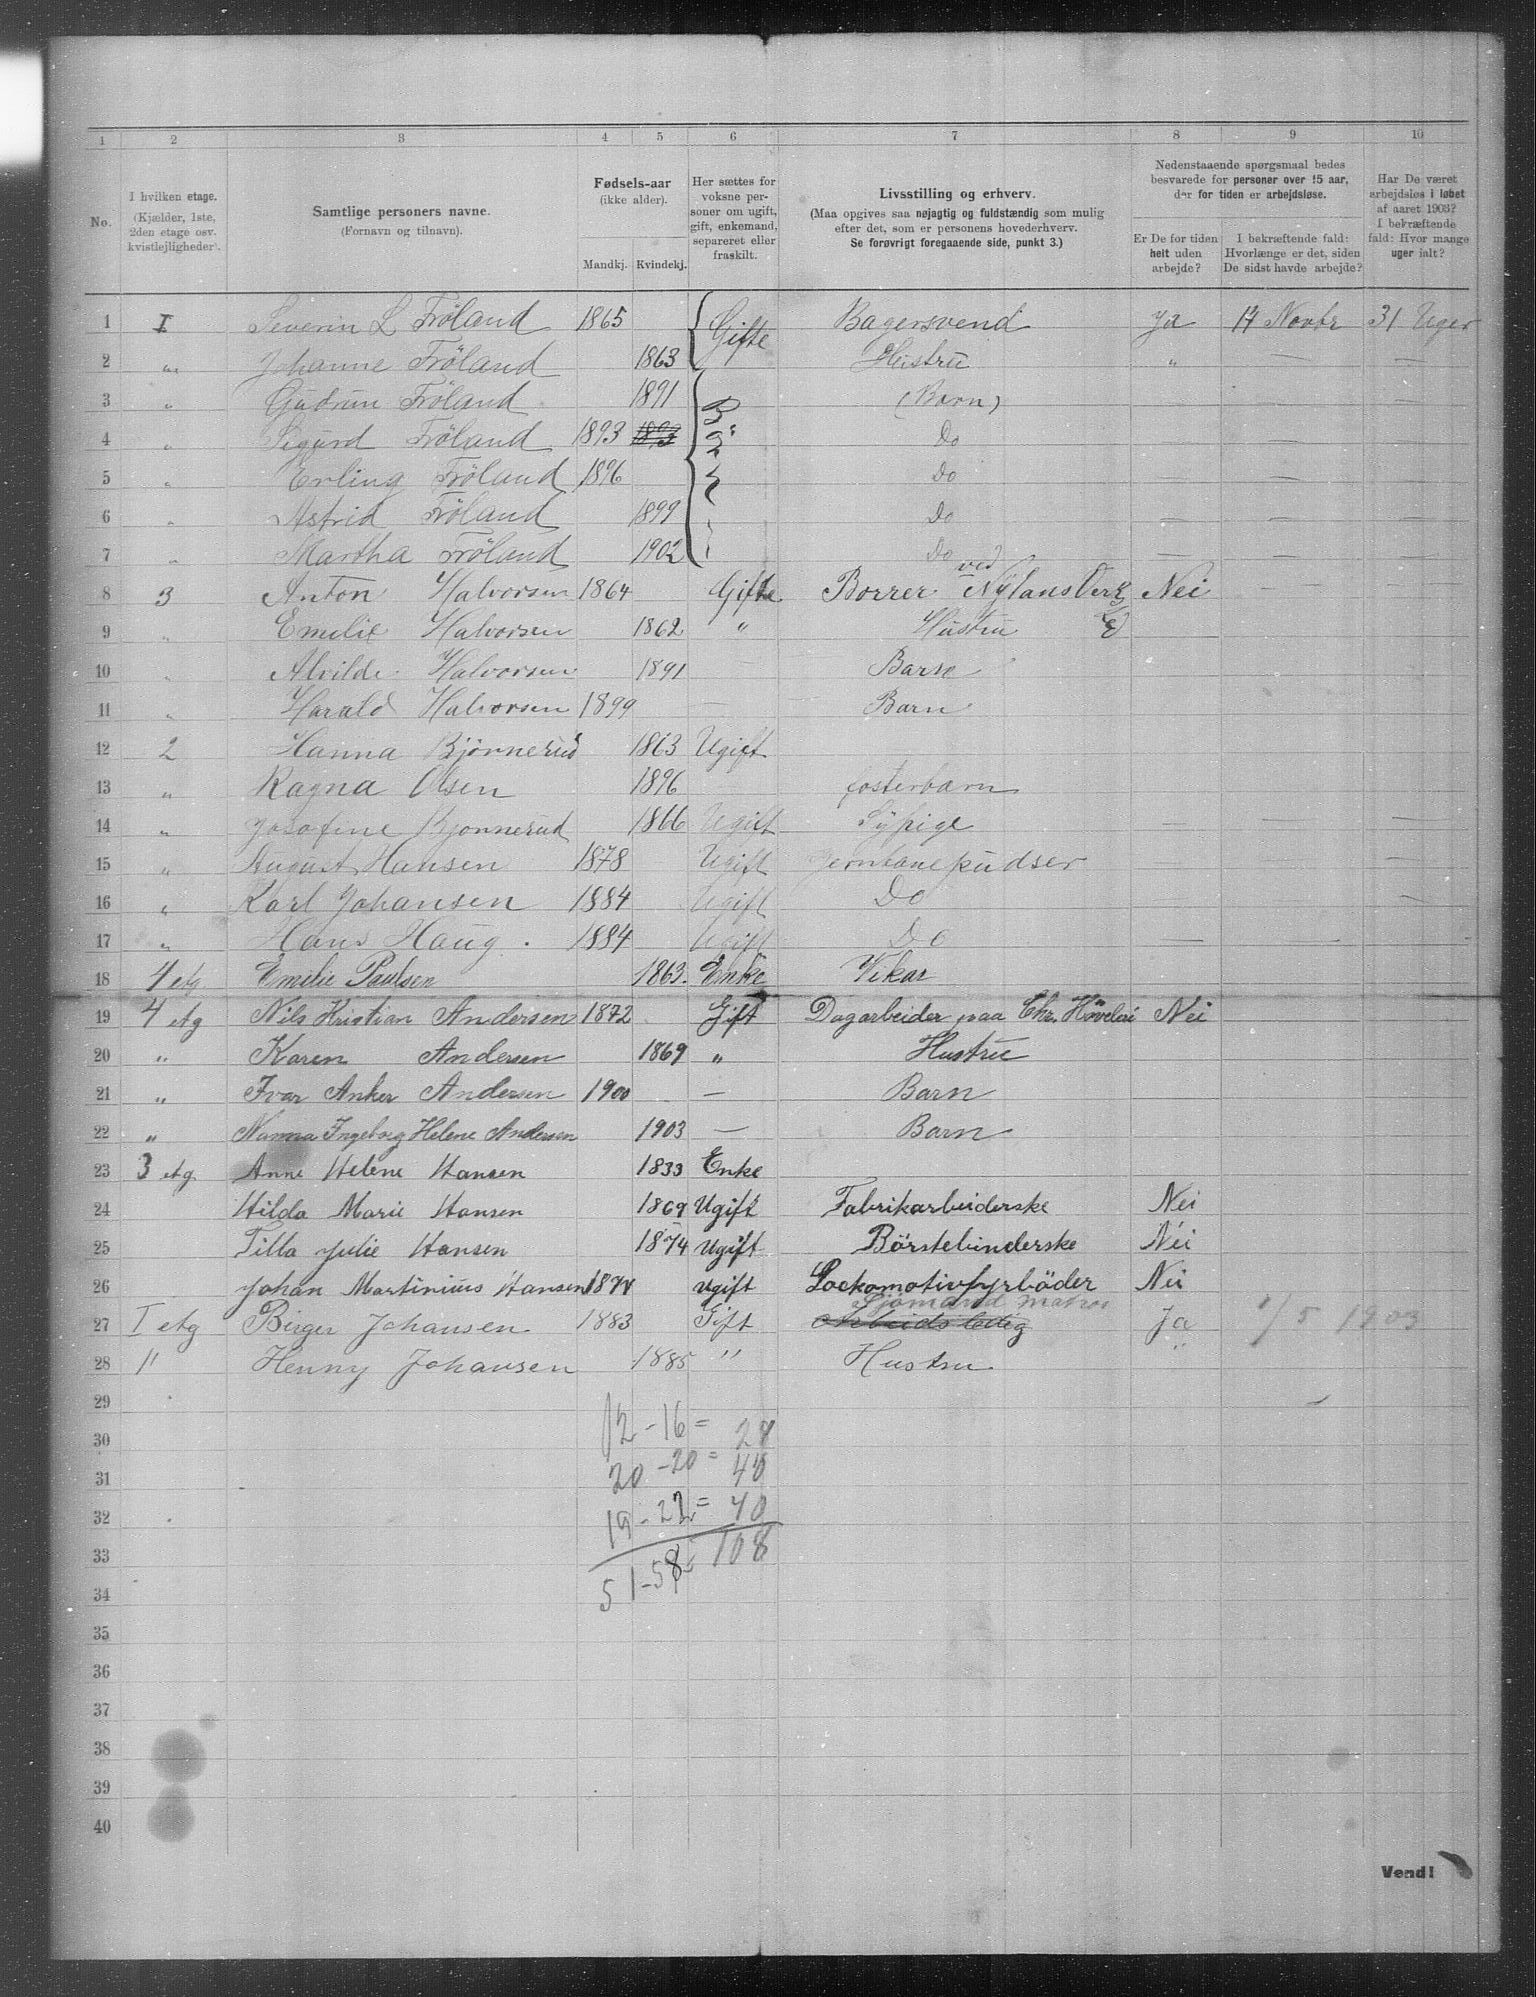 1 2 3 4 5 6 7 8 9 10
No. I hvilken etage. (Kjælder, 1ste, 2den etage osv. kvistlejligheder).
Samtlige personers navne. (Fornavn og tilnavn).
Fødsels-aar (ikke alder). Mandkj. Kvindekj.
Her sættes for voksne personer om ugift, gift, enkemand, separeret eller fraskilt.
Livsstilling og erhverv. (Maa opgives saa nøjagtig og fuldstændig som mulig efter det, som er personens hovederhverv. Se forøvrigt foregaaende side, punkt 3.)
Nedenstaaende spørgsmaal bedes besvarede for personer over 15 aar, der for tiden er arbejdsløse.
Er De for tiden helt uden arbejde?
I bekræftende fald: Hvorlænge er det, siden De sidst havde arbejde?
Har De været arbejdsløs i løbet af aaret 1903? I bekræftende fald: Hvor mange uger ialt?
1 I Severin L Fröland 1865 Gifte Bagersvend Ja 14 Novbr 31 Uger
2 " Johanne Fröland 1863 Hustru " — —
3 " Gudrun Fröland 1891 Börn (Barn) — — —
4 " Sigurd Fröland 1893 1893 Do — — —
5 " Erling Fröland 1896 Do — — —
6 " Astrid Fröland 1899 Do — — —
7 " Martha Fröland 1902 Do — — —
8 3 Anton Halvorsen 1864 Gifte Borrer ved Nylans Verksted Nei — —
9 " Emelie Halvorsen 1862 " Hustru
10 " Alvilde Halvorsen 1891 — Barse
11 " Harald Halvorsen 1899 — Barn
12 2 Hanna Bjørnerud 1863 Ugift
13 " Ragna Olsen 1896 fosterbarn
14 " Josefine Bjonnerud 1866 Ugift Sypige — — —
15 " August Hansen 1878 Ugift Jernbanepudser —
16 " Karl Johansen 1884 Ugift Do —
17 " Hans Haug. 1884 Ugift Do — — —
18 4 etg Emelie Paulsen 1863. Enke Vikar
19 4 etg Nils Kristian Andersen 1872 Gift Dagarbeider paa Chr. Høvleri Nei
20 " Karen Andersen 1869 " Hustru
21 " Ivar Anker Andersen 1900 — Barn
22 " Nanna Ingeborg Helene Andersen 1903 — Barn
23 3 etg Anne Helene Hansen 1833 Enke
24 Hilda Marie Hansen 1869 Ugift Fabrikarbeiderske Nei
25 Tilla Julie Hansen 1874 Ugift Börstebinderske Nei
26 Johan Martinius Hansen 1871 ugift Lockomotivfyrböder Nei
Sjömand matros
27 I etg Birger Johansen 1883 Gift Arbeidsledig Ja 1/5 1903
28 " Henny Johansen 1885 " Hustru "
29
12 - 16 = 28
30
20 - 20 = 40
31
32
19 - 22 = 40
33
51 - 58 = 108
34
35
36
37
38
39
40
Vend!